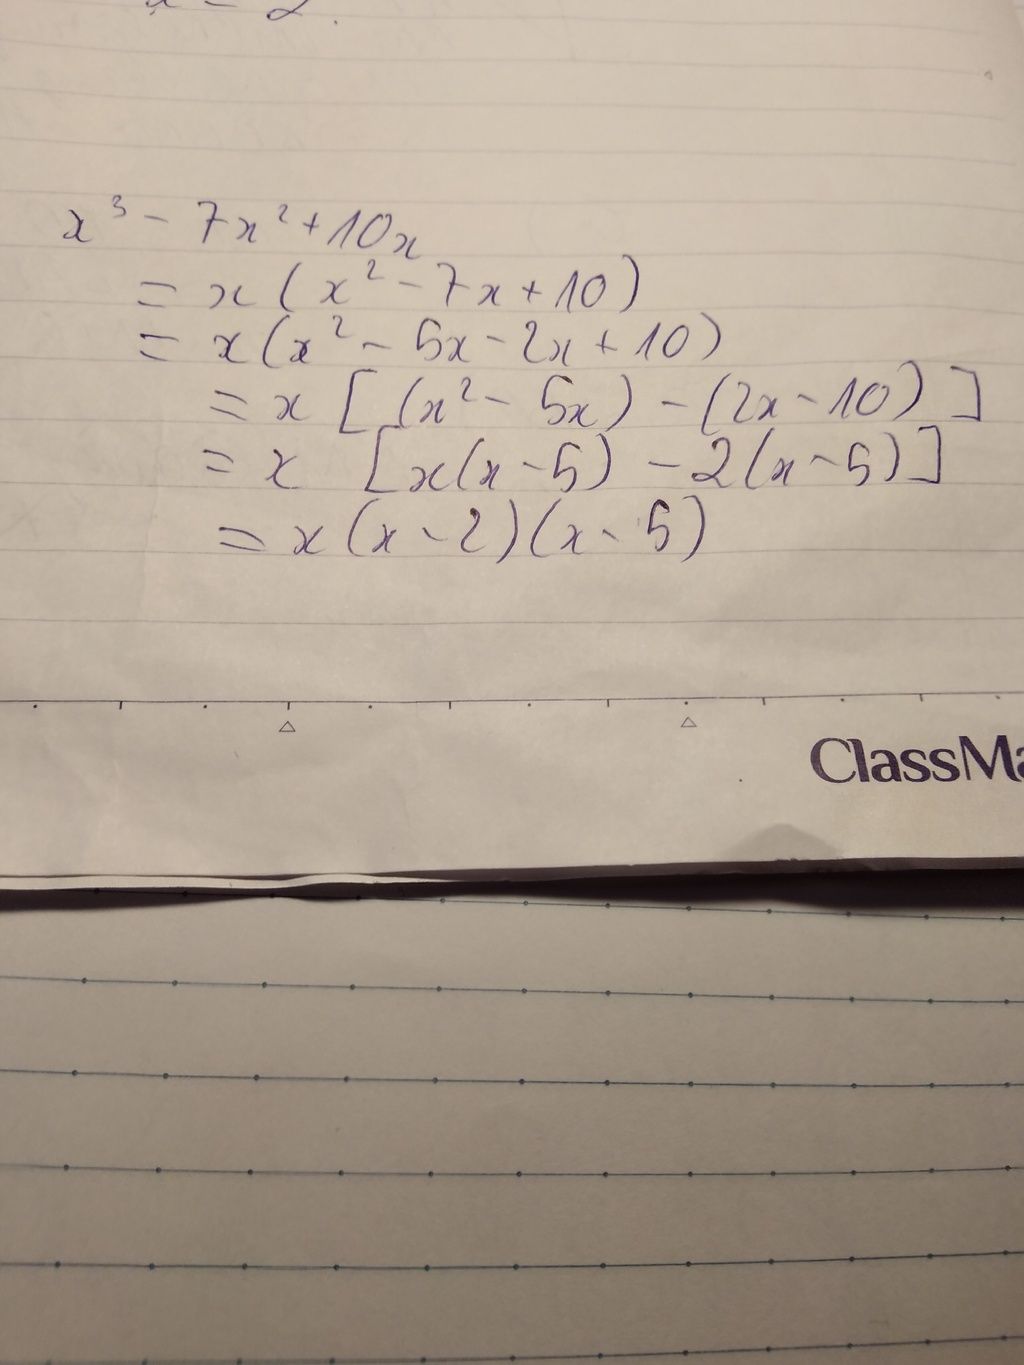 x = 2.
x³ - 7x² + 10x
= x (x² - 7x + 10)
= x (x² - 5x - 2x + 10)
= x [(x² - 5x) - (2x - 10)]
= x [x(x - 5) - 2(x - 5)]
= x (x - 2)(x - 5)
ClassMa